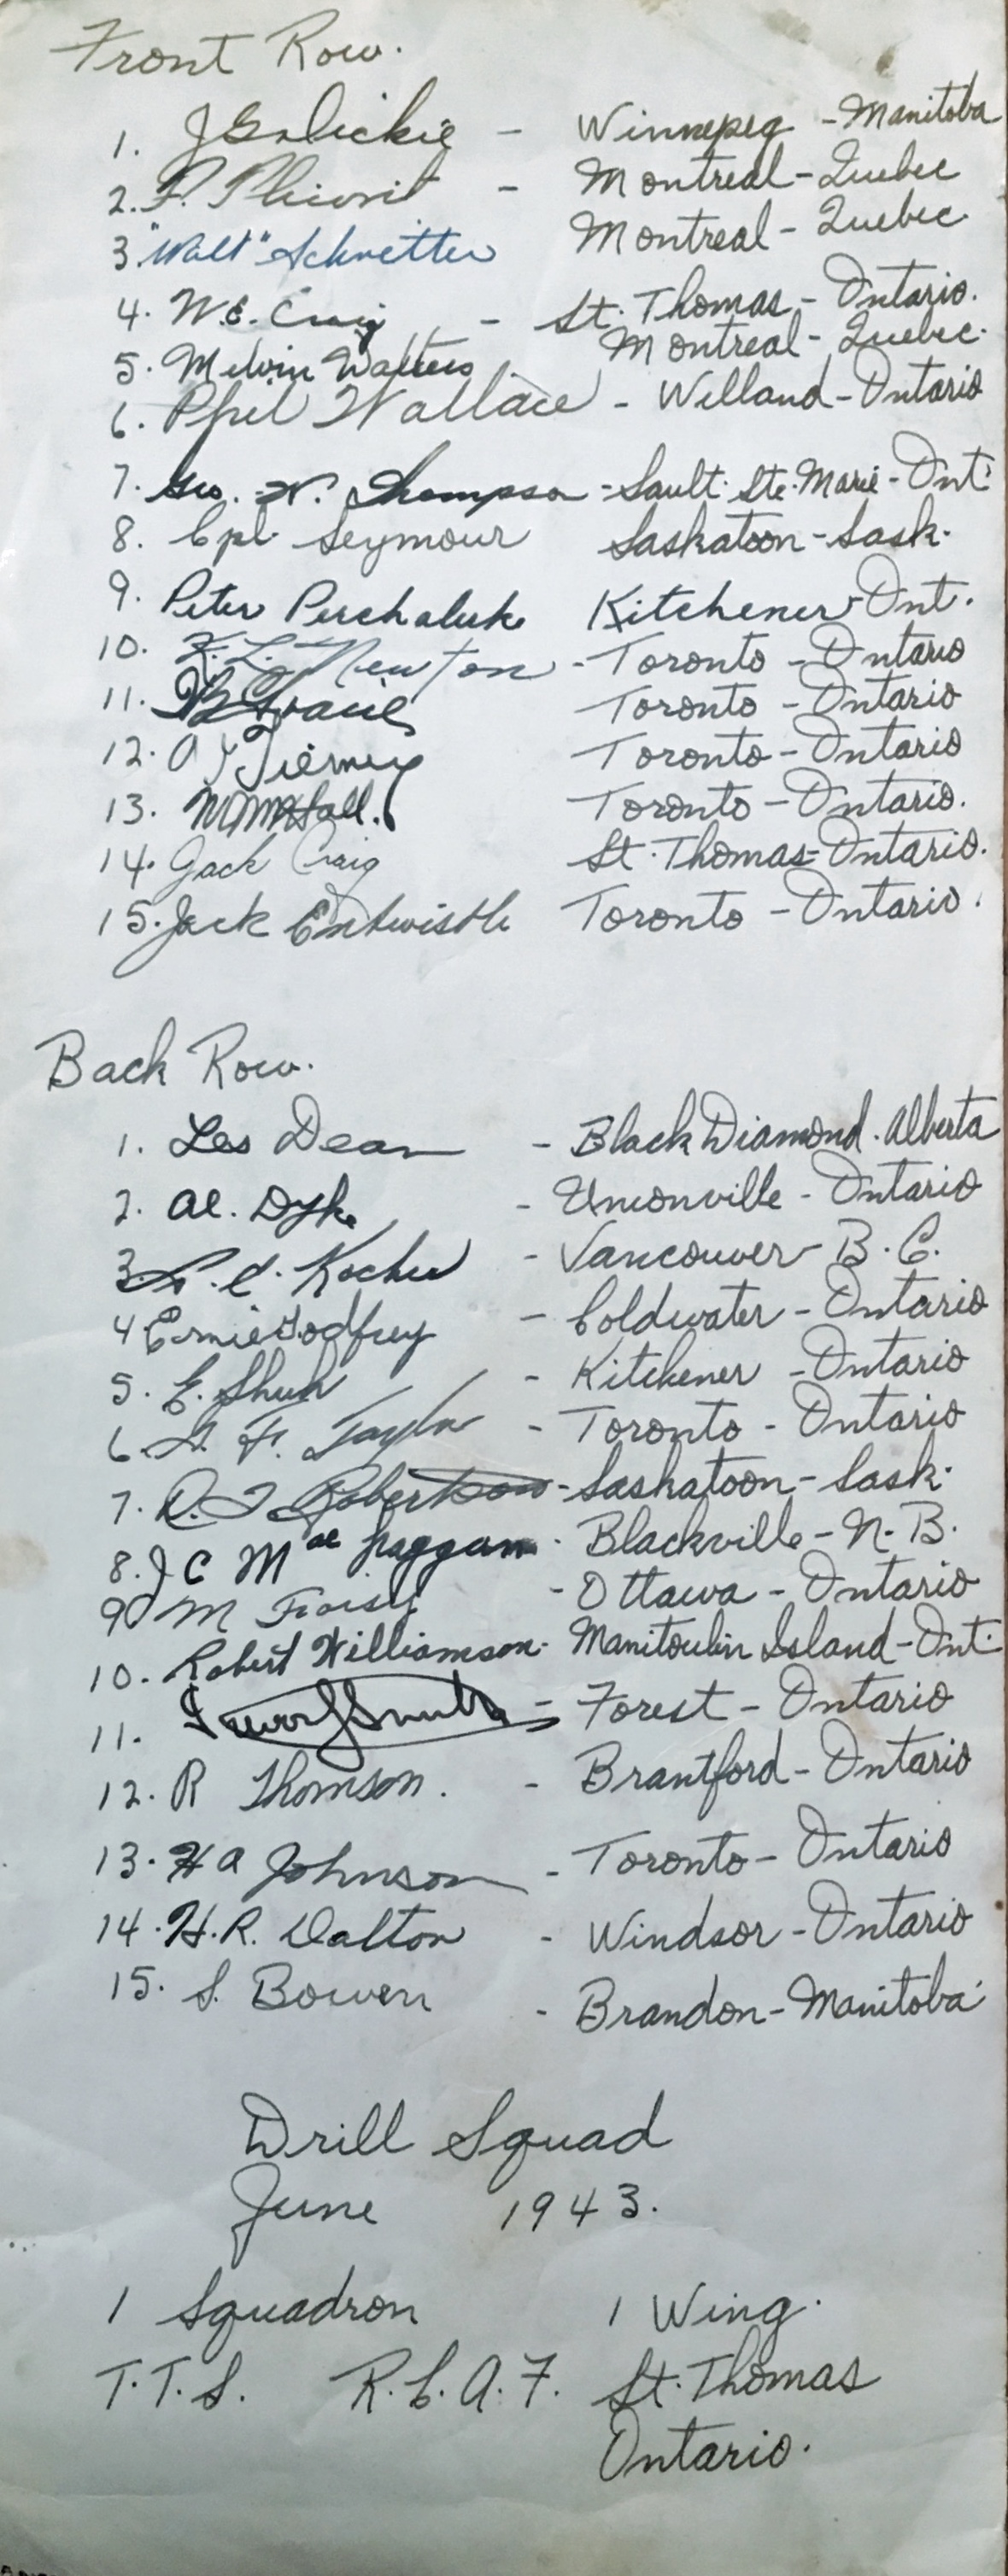 Front Row.
1. J G Dickie - Winnepeg - Manitoba
2. P. - Montreal - Quebec
3 "Walt" Schnetter Montreal - Quebec.
4. W.E. Craig - St. Thomas - Ontario.
5. Melvin Walters Montreal - Quebec.
6. Wallace - Welland - Ontario
7. Geo. N. Thompson - Sault. Ste. Marie - Ont.
8. Cpl. Seymour Saskatoon - Sask.
9. Peter Perchaluk Kitchener - Ont.
10. Newton - Toronto - Ontario
11. Toronto - Ontario
12. A J Tierney Toronto - Ontario
13. Hall. Toronto - Ontario.
14. Jack Craig St. Thomas - Ontario.
15. Jack Entwistle Toronto - Ontario.
Back Row.
1. Les Dean - Black Diamond. Alberta
2. Al. Dyke - Unionville - Ontario
3. Kocher - Vancouver - B.C.
4 Ernie Godfrey - Coldwater - Ontario
5. E. Shuh - Kitchener - Ontario
6. F. Taylor - Toronto - Ontario
7. Robertson - Saskatoon - Sask.
8. J C Mac Laggan. Blackville - N.B.
9 M Froisy - Ottawa - Ontario
10. Robert Williamson - Manitoulin Island - Ont.
11. Trevor J Smith - Forest - Ontario
12. R Thomson. - Brantford - Ontario
13. H A Johnson - Toronto - Ontario
14. H.R. Dalton - Windsor - Ontario
15. S. Bowen - Brandon - Manitoba
Drill Squad
June 1943.
1 Squadron 1 Wing.
T.T.S. R.C.A.F. St. Thomas
Ontario.